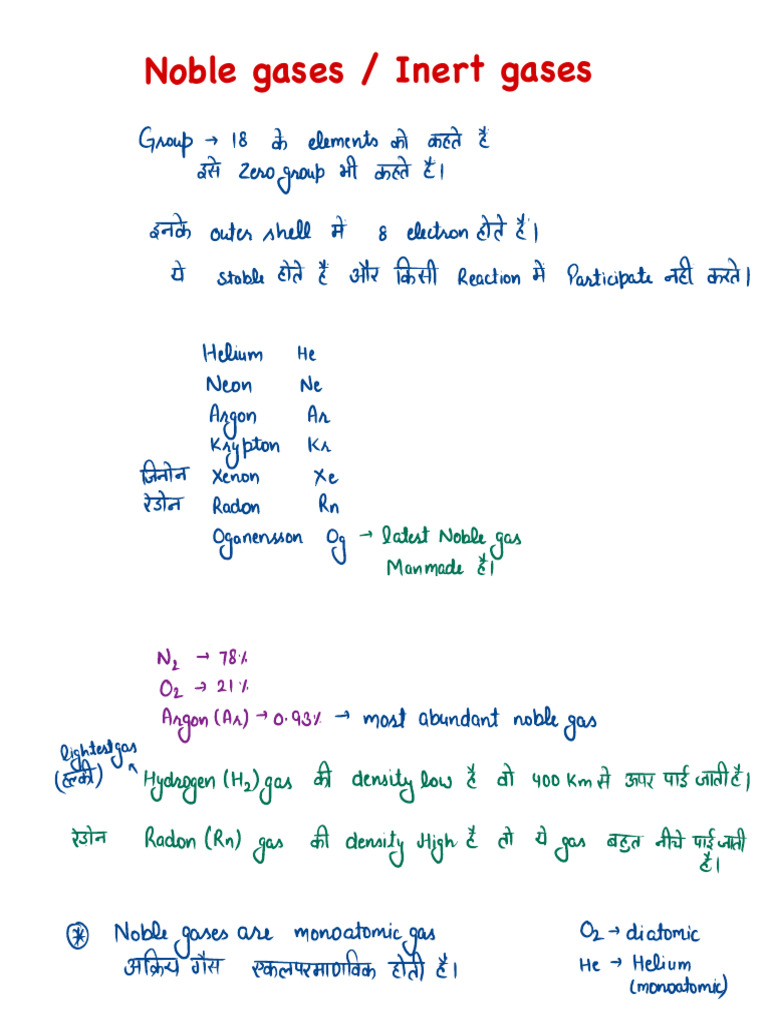 Noble gases / Inert gases
Group → 18 के elements को कहते है
इसे Zero group भी कहते है।
इनके outer shell में 8 electron होते है।
ये stable होते है और किसी Reaction में Participate नही करते।
Helium He
Neon Ne
Argon Ar
Krypton Kr
जिनोन Xenon Xe
रेडोन Radon Rn
Oganensson Og → latest Noble gas
Manmade है।
N2 → 78%
O2 → 21%
Argon (Ar) → 0.93% → most abundant noble gas
lightest gas
(हल्की) Hydrogen (H2) gas की density low है वो 400 Km से ऊपर पाई जाती है।
रेडोन Radon (Rn) gas की density High है तो ये gas बहुत नीचे पाई जाती
है।
* Noble gases are monoatomic gas O2 → diatomic
अक्रिय गैस एकलपरमाणविक होती है। He → Helium
(monoatomic)